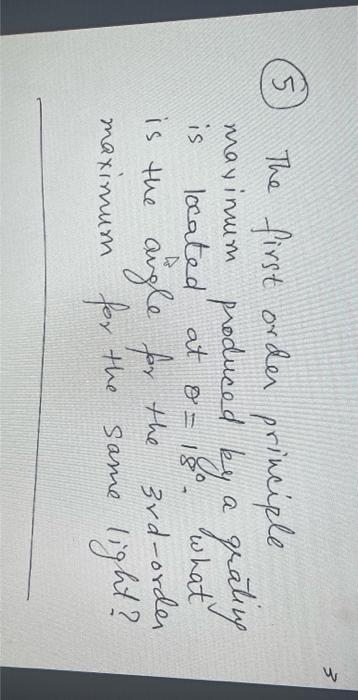 3
5 The first order principle
maximum produced by a grating
is located at θ = 18°. what
is the angle for the 3rd-order
maximum for the same light?